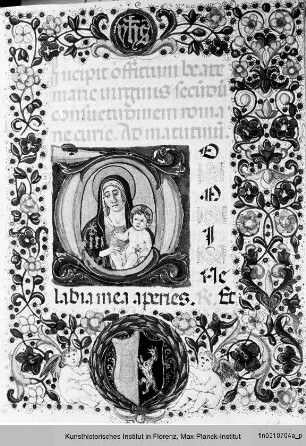 yhs
Incipit offitium beate
marie virginis secūdū
consuetudinem roma
ne curie. Ad matutinū.
D
O
M
I
Ne
labia mea aperies. Et
Kunsthistorisches Institut in Florenz, Max-Planck-Institut